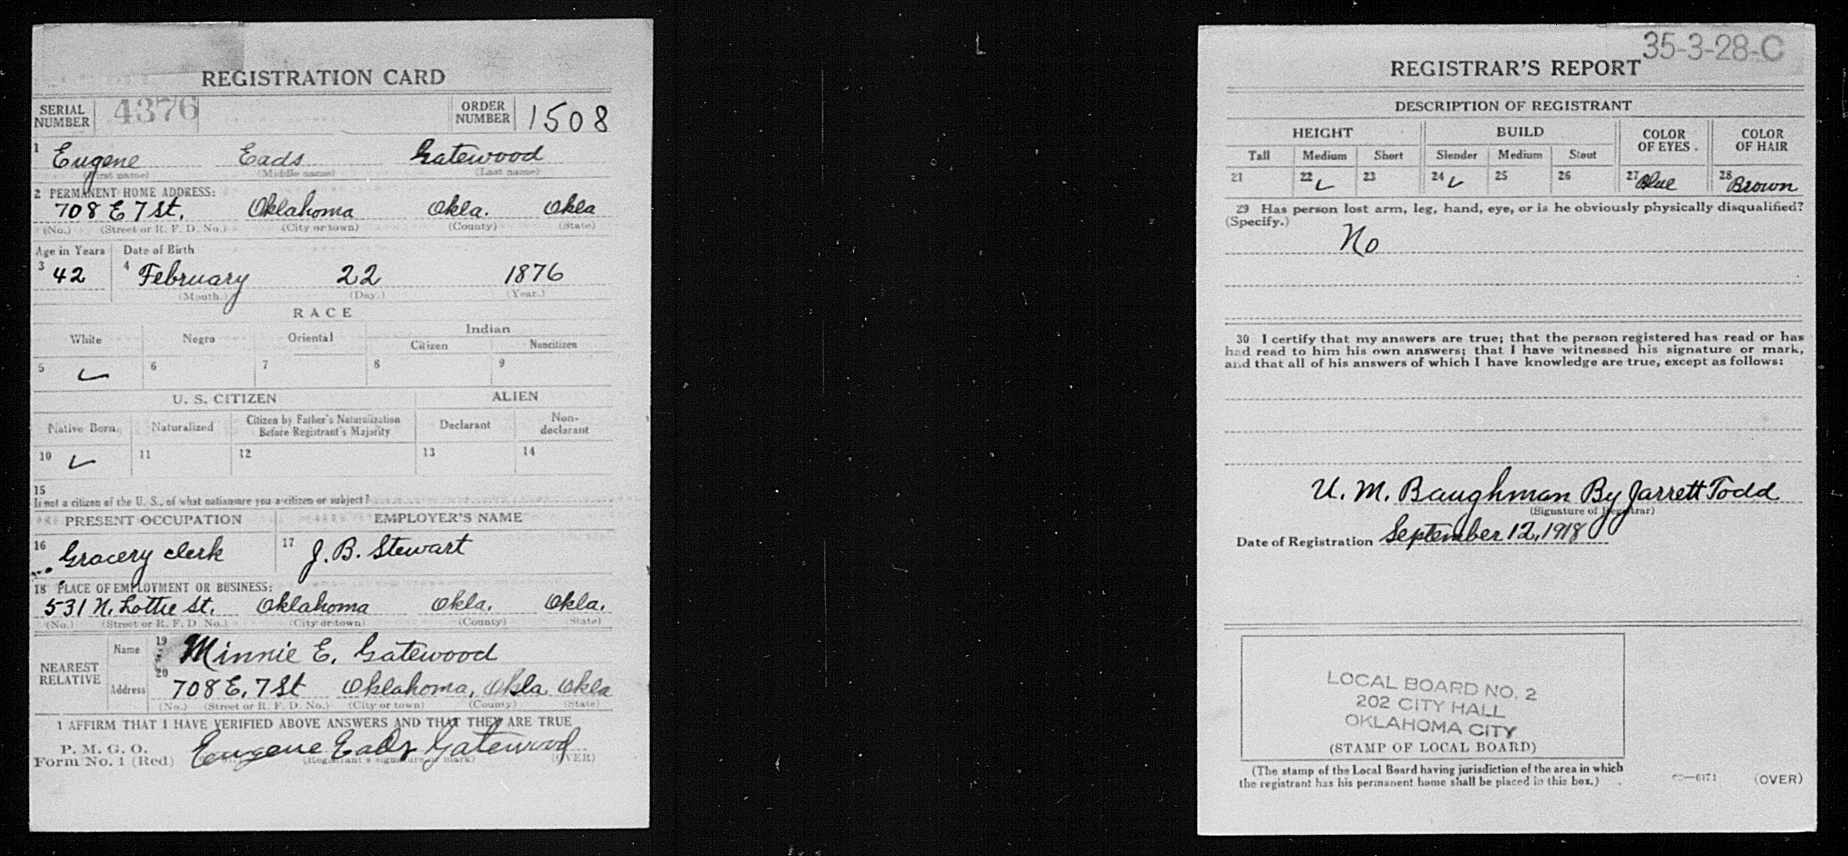 REGISTRATION CARD
SERIAL NUMBER 4376 ORDER NUMBER 1508
1 Eugene Eads Gatewood
(First name) (Middle name) (Last name)
2 PERMANENT HOME ADDRESS:
708 E 7 St. Oklahoma Okla. Okla
(No.) (Street or R. F. D. No.) (City or town) (County) (State)
Age in Years Date of Birth
3 42 4 February 22 1876
(Month.) (Day.) (Year.)
RACE
White Negro Oriental Indian
Citizen Noncitizen
5 ✓ 6 7 8 9
U. S. CITIZEN ALIEN
Native Born. Naturalized Citizen by Father's Naturalization Before Registrant's Majority Declarant Non-declarant
10 ✓ 11 12 13 14
15
If not a citizen of the U. S., of what nation are you a citizen or subject?
PRESENT OCCUPATION EMPLOYER'S NAME
16 Grocery clerk 17 J. B. Stewart
18 PLACE OF EMPLOYMENT OR BUSINESS:
531 N. Lottie St. Oklahoma Okla. Okla.
(No.) (Street or R. F. D. No.) (City or town) (County) (State)
NEAREST RELATIVE
Name 19 Minnie E. Gatewood
Address 20 708 E. 7 St Oklahoma, Okla Okla
(No.) (Street or R. F. D. No.) (City or town) (County) (State)
I AFFIRM THAT I HAVE VERIFIED ABOVE ANSWERS AND THAT THEY ARE TRUE
P. M. G. O.
Form No. 1 (Red) Eugene Eads Gatewood
(Registrant's signature or mark) (OVER)
35-3-28-C
REGISTRAR'S REPORT
DESCRIPTION OF REGISTRANT
HEIGHT BUILD COLOR OF EYES COLOR OF HAIR
Tall Medium Short Slender Medium Stout
21 22 ✓ 23 24 ✓ 25 26 27 Blue 28 Brown
29 Has person lost arm, leg, hand, eye, or is he obviously physically disqualified?
(Specify.)
No
30 I certify that my answers are true; that the person registered has read or has
had read to him his own answers; that I have witnessed his signature or mark,
and that all of his answers of which I have knowledge are true, except as follows:
U. M. Baughman By Jarrett Todd
(Signature of Registrar)
Date of Registration September 12, 1918
LOCAL BOARD NO. 2
202 CITY HALL
OKLAHOMA CITY
(STAMP OF LOCAL BOARD)
(The stamp of the Local Board having jurisdiction of the area in which
the registrant has his permanent home shall be placed in this box.)
(OVER)